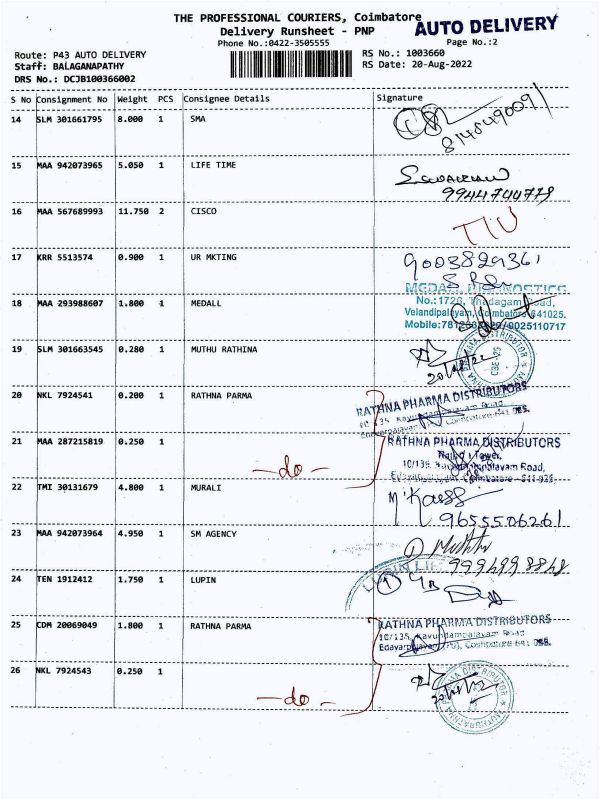 THE PROFESSIONAL COURIERS, Coimbatore
AUTO DELIVERY
Delivery Runsheet - PNP
Phone No.:0422-3505555
Page No.:2
Route: P43 AUTO DELIVERY
RS No.: 1003660
Staff: BALAGANAPATHY
RS Date: 20-Aug-2022
DRS No.: DCJB100366002
S No Consignment No Weight PCS Consignee Details Signature
14 SLM 301661795 8.000 1 SMA
15 MAA 942073965 5.050 1 LIFE TIME
9944740778
16 MAA 567689993 11.750 2 CISCO
17 KRR 5513574 0.900 1 UR MKTING
9003829361
MEDALL DIAGNOSTICS
18 MAA 293988607 1.800 1 MEDALL
No.: 172 Thadagam Road,
Velandipalayam, Coimbatore 641025.
Mobile: 9025110717
19 SLM 301663545 0.280 1 MUTHU RATHINA
20 NKL 7924541 0.200 1 RATHNA PARMA
RATHNA PHARMA DISTRIBUTORS
21 MAA 287215819 0.250 1 -do-
RATHNA PHARMA DISTRIBUTORS
Tower,
10/135, Kavundampalayam Road,
22 TMI 30131679 4.800 1 MURALI
9655506261
23 MAA 942073964 4.950 1 SM AGENCY
24 TEN 1912412 1.750 1 LUPIN
25 CDM 20069049 1.800 1 RATHNA PARMA
RATHNA PHARMA DISTRIBUTORS
10/135, Kavundampalayam Road
Edayarpalayam (PO), Coimbatore-641 025.
26 NKL 7924543 0.250 1 -do-